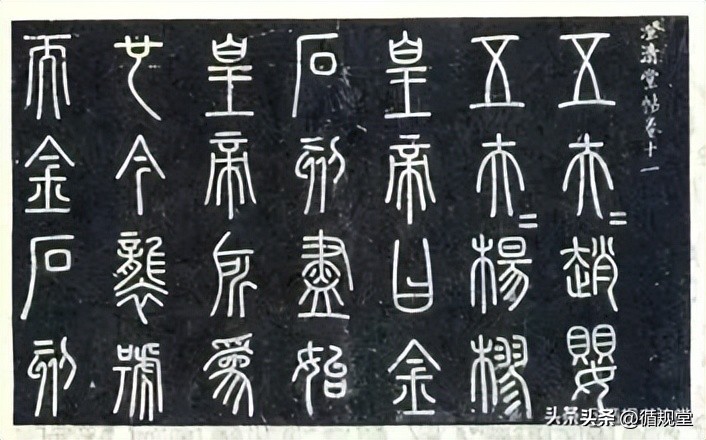 澄清堂帖卷十一
五夫〓趙嬰
五夫〓楊樛
皇帝曰金
石刻盡始
皇帝所爲
也今襲號
而金石刻
头条头条 @循规堂